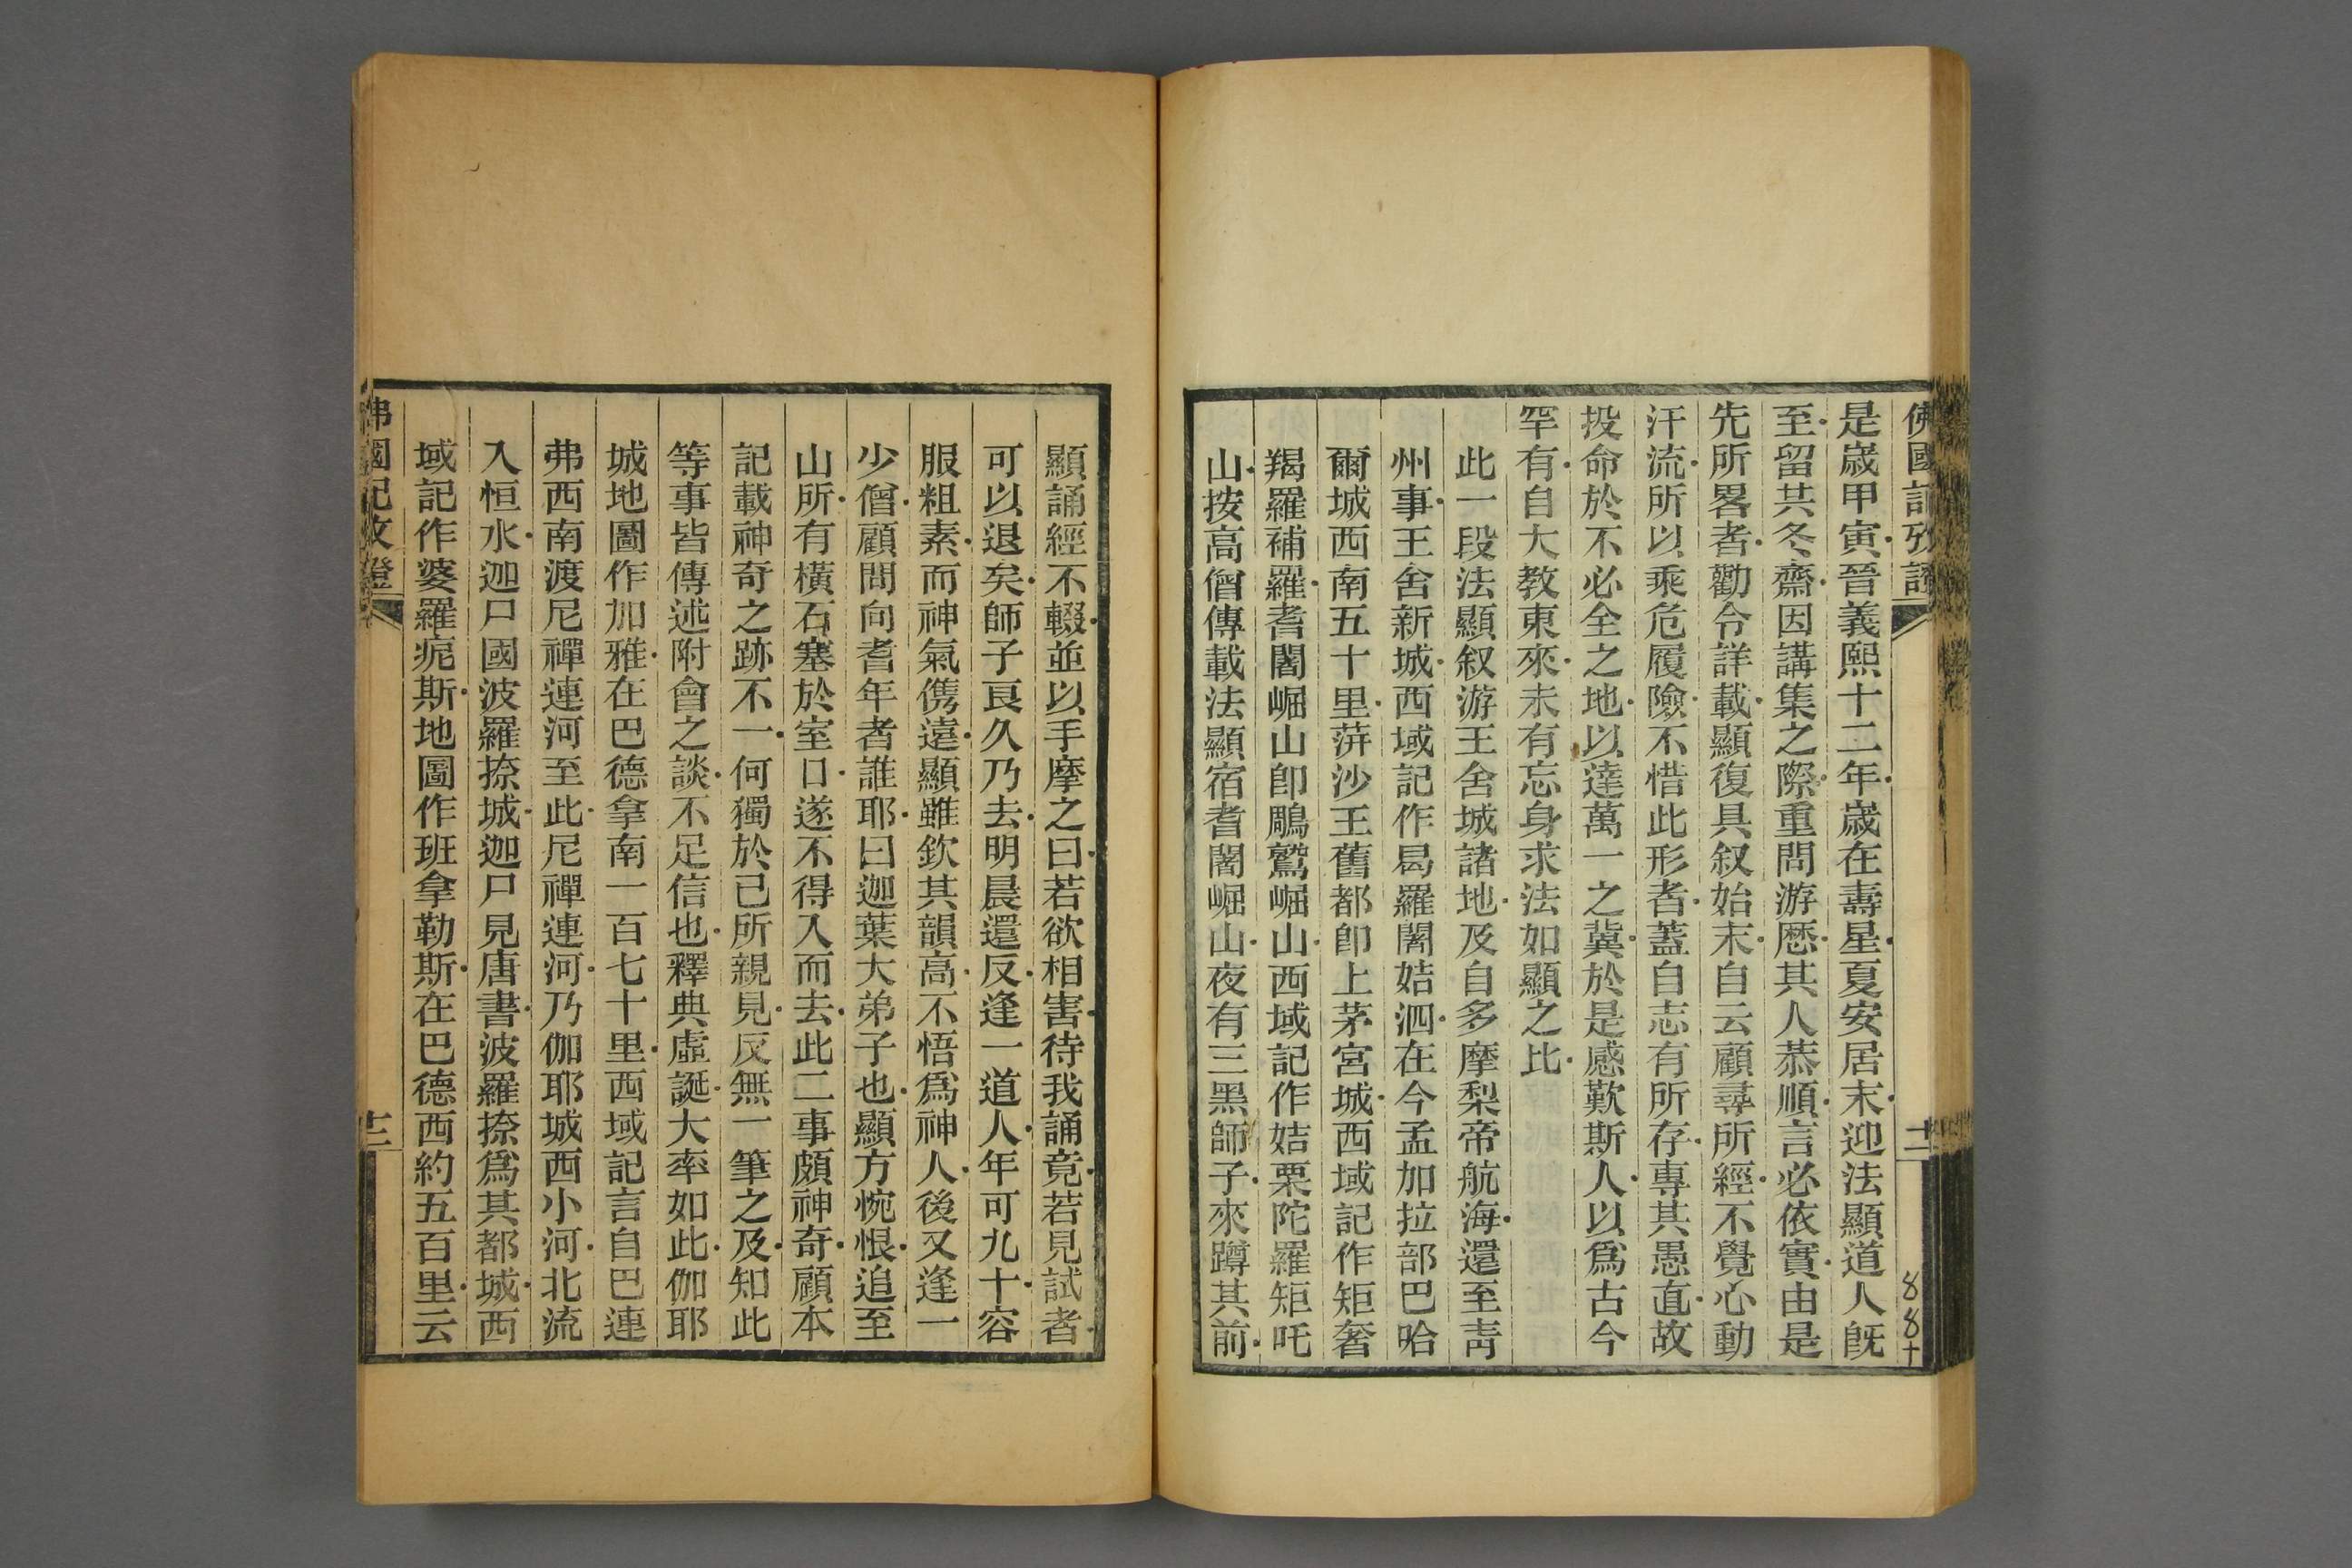 佛國記攷證
十二
88十
是歲甲寅晉義熙十二年歲在壽星夏安居末迎法顯道人旣
至留共冬齋因講集之際重問游歷其人恭順言必依實由是
先所畧者勸令詳載顯復具叙始末自云顧尋所經不覺心動
汗流所以乘危履險不惜此形者蓋自志有所存專其愚直故
投命於不必全之地以達萬一之冀於是感歎斯人以爲古今
罕有自大教東來未有忘身求法如顯之比
此一段法顯叙游王舍城諸地及自多摩梨帝航海還至靑
州事王舍新城西域記作曷羅闍姞泗在今孟加拉部巴哈
爾城西南五十里蓱沙王舊都卽上茅宮城西域記作矩奢
羯羅補羅耆闍崛山卽鵰鷲崛山西域記作姞栗陀羅矩吒
山按高僧傳載法顯宿耆闍崛山夜有三黑師子來蹲其前
顯誦經不輟並以手摩之曰若欲相害待我誦竟若見試者
可以退矣師子良久乃去明晨還反逢一道人年可九十容
服粗素而神氣儁遠顯雖欽其韻高不悟爲神人後又逢一
少僧顧問向耆年者誰耶曰迦葉大弟子也顯方惋恨追至
山所有橫石塞於室口遂不得入而去此二事頗神奇顧本
記載神奇之跡不一何獨於已所親見反無一筆之及知此
等事皆傳述附會之談不足信也釋典虛誕大率如此伽耶
城地圖作加雅在巴德拿南一百七十里西域記言自巴連
弗西南渡尼禪連河至此尼禪連河乃伽耶城西小河北流
入恒水迦尸國波羅捺城迦尸見唐書波羅捺爲其都城西
域記作婆羅痆斯地圖作班拿勒斯在巴德西約五百里云
佛國記攷證
十二